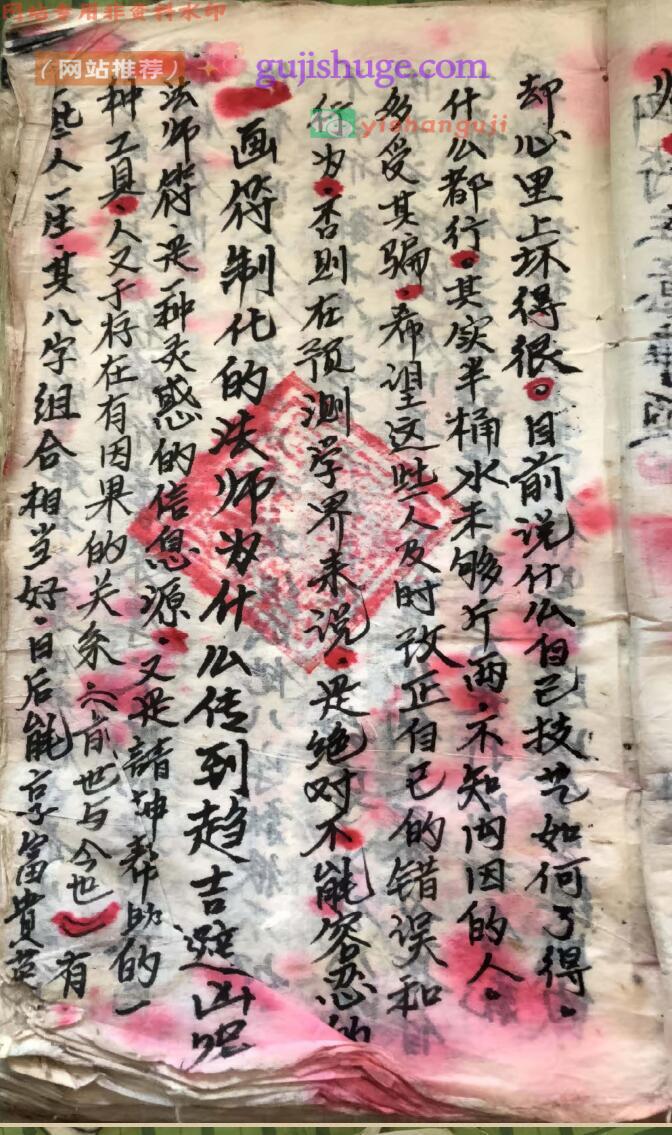 网站专用非资料水印
（网站推荐）
gujishuge.com
yishanguji
却心里上坏得很。目前说什么自己技艺如何了得。
什么都行。其实半桶水未够斤两，不知内因的人。
多受其骗。希望这些人及时改正自己的错误和
行为。否则在预测学界来说。是绝对不能容忍的
画符制化的法师为什么传到趋吉避凶呢
法师符、是一种灵惑的信息源。又是請神帮助的一
种工具。人又于存在有因果的关系（前世与今世）有
些人一生，其八字组合相当好。日后能享富貴